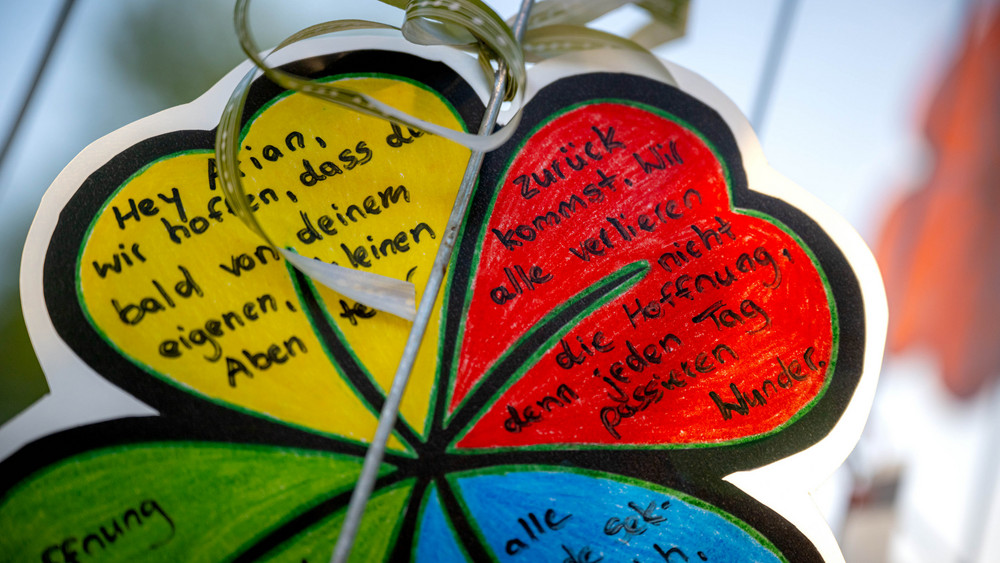 Hey Arian,
wir hoffen, dass du
bald von deinem
eigenen, kleinen
Aben te
zurück
kommst. Wir
alle verlieren
nicht
die Hoffnung,
denn jeden Tag
passieren
Wunder.
alle